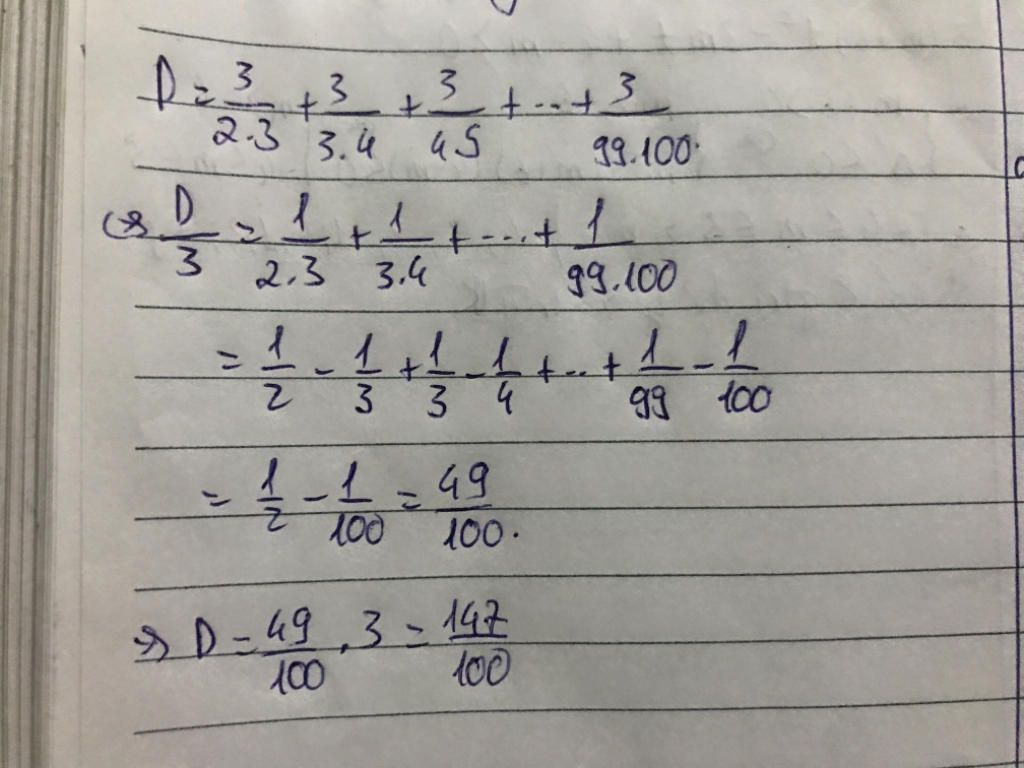 D = 3/2.3 + 3/3.4 + 3/4 5 + ... + 3/99.100.
<=> D/3 = 1/2.3 + 1/3.4 + ... + 1/99.100
= 1/2 - 1/3 + 1/3 - 1/4 + .. + 1/99 - 1/100
= 1/2 - 1/100 = 49/100.
=> D = 49/100 . 3 = 147/100